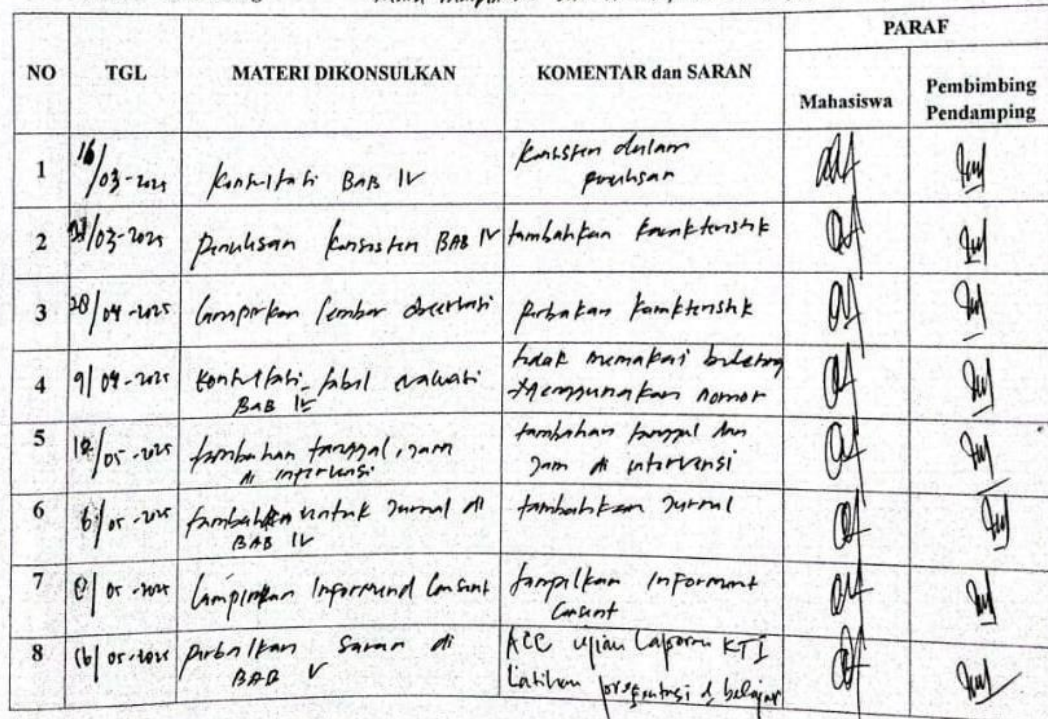 PARAF
NO TGL MATERI DIKONSULKAN KOMENTAR dan SARAN Mahasiswa Pembimbing
Pendamping
1 16/03-2025 Konsultasi BAB IV Konsisten dalam
penulisan
2 /03-2025 Penulisan konsisten BAB IV tambahkan karakteristik
3 28/04-2025 Lampirkan lembar observasi Perbaikan karakteristik
4 9/04-2025 Konsultasi tabel evaluasi
BAB IV
tidak memakai
menggunakan nomor
5 /05-2025 tambahan tanggal, jam
di intervensi
tambahan tanggal dan
jam di intervensi
6 6/05-2025 untuk Jurnal di
BAB IV
tambahkan Jurnal
7 /05-2025 Lampirkan Informend Consent
tampilkan Informent
Consent
8 16/05-2025 Perbaikan Saran di
BAB V
ACC Ujian Laporan KTI
Latihan presentasi & belajar